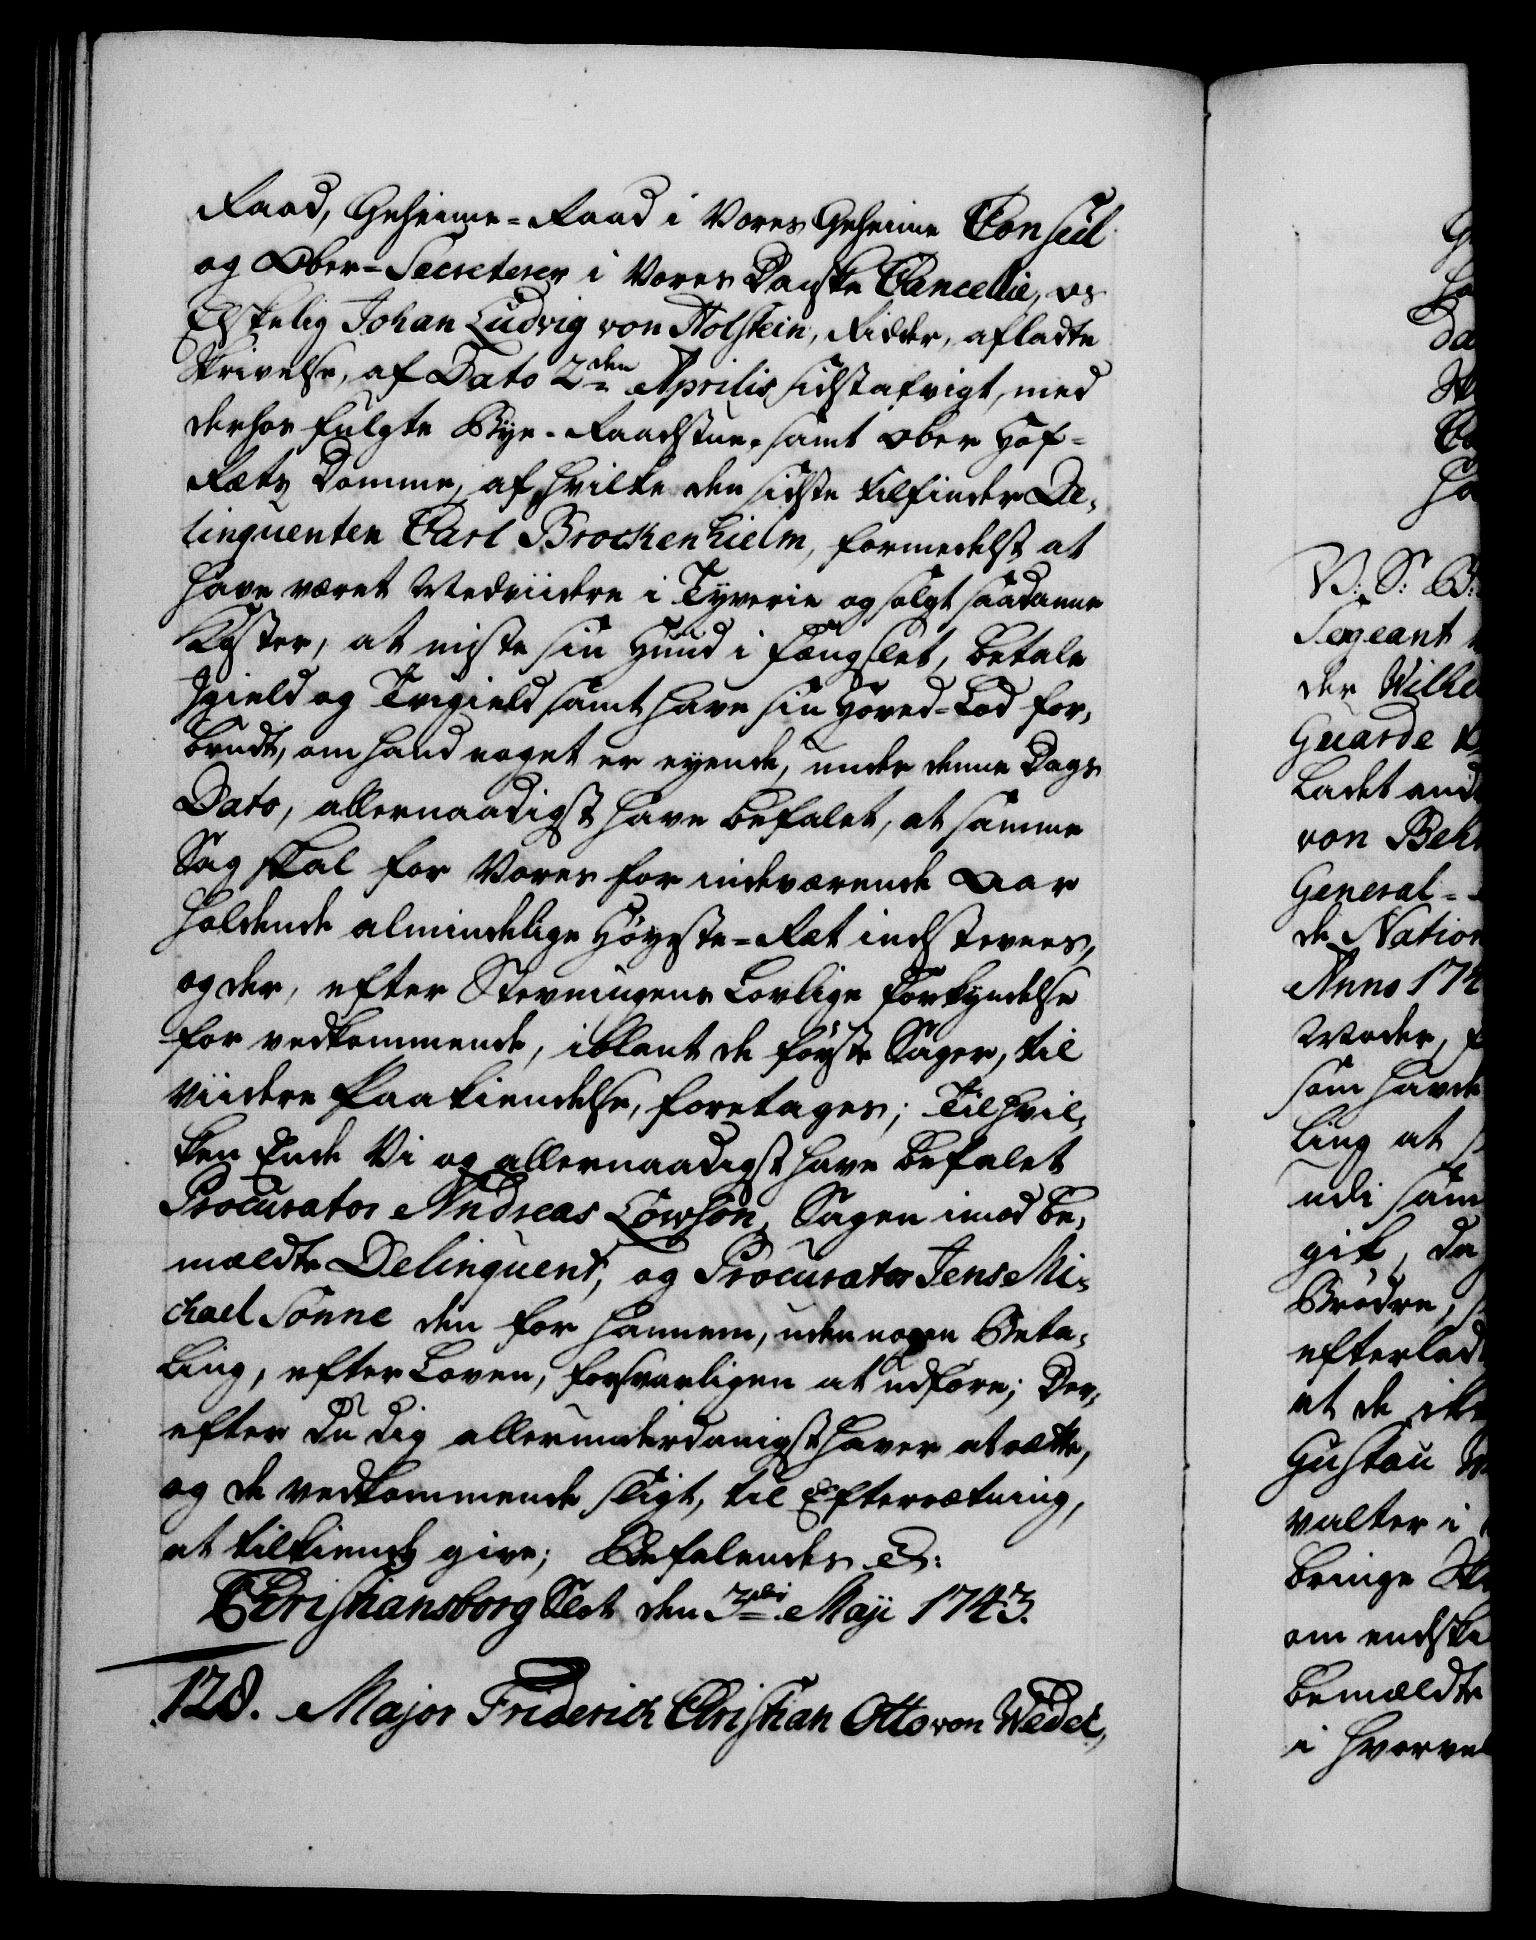 Raad, Geheime-Raad i Vores Geheime Conseil
og Ober-Secreterer i Vores Danske Cancellie, os
Elskelig Johan Ludvig von Holstein, Ridder, afladte
Skrivelse, af Dato 2den Aprilis sidstafvigt, med
derhos fulgte Bye- Raadstue- samt Ober Hof-
Rætz Domme, af hvilke den sidste tilfinder De-
linquenten Carl Brockenhielm, formedelst at
have været Medviidere i Tyverie og solgt saadanne
Koster, at miste sin Huud i Fængslet, betale
Igield og Tvigield samt have sin Hoved-Lod for-
brudt, om hand noget er eyende, under denne Dags
Dato, allernaadigst have befalet, at samme
Sag skal for Vores for indeværende Aar
holdende almindelige Høyeste-Ret indstevnes,
og der, efter Stevningens Lovlige Forkyndelse
for vedkommende, iblant de første Sager, til
viidere Paakiendelse, foretages; Til hvil-
ken Ende Vi og allernaadigst have befalet
Procurator Andreas Lowson, Sagen imod be-
mældte Delinquent, og Procurator Jens Mi-
chael Sonne den for hannem, uden nogen Beta-
ling, efter Loven, forsvarligen at udføre; Der-
efter du dig allerunderdanigst haver at rætte,
og de vedkommende sligt, til Efterrætning,
at tilkiende give; Befalendes &:
Christiansborg Slot den 3die Maji 1743.
128. Major Friderich Christian Otto von Wedel,
G
ha
Da
Sk
Co
ha
V: S: G:
Sergeant
der Wilhe
Guarde
Ladet and
von Behr
General-
de Nation
Anno 174
Moder, f
som havde
ling at
udi sam
gik, da
Brødre,
efterlad
at de ik
Gustav W
valter i
bringe Sk
om endski
bemældte
i hvorvel